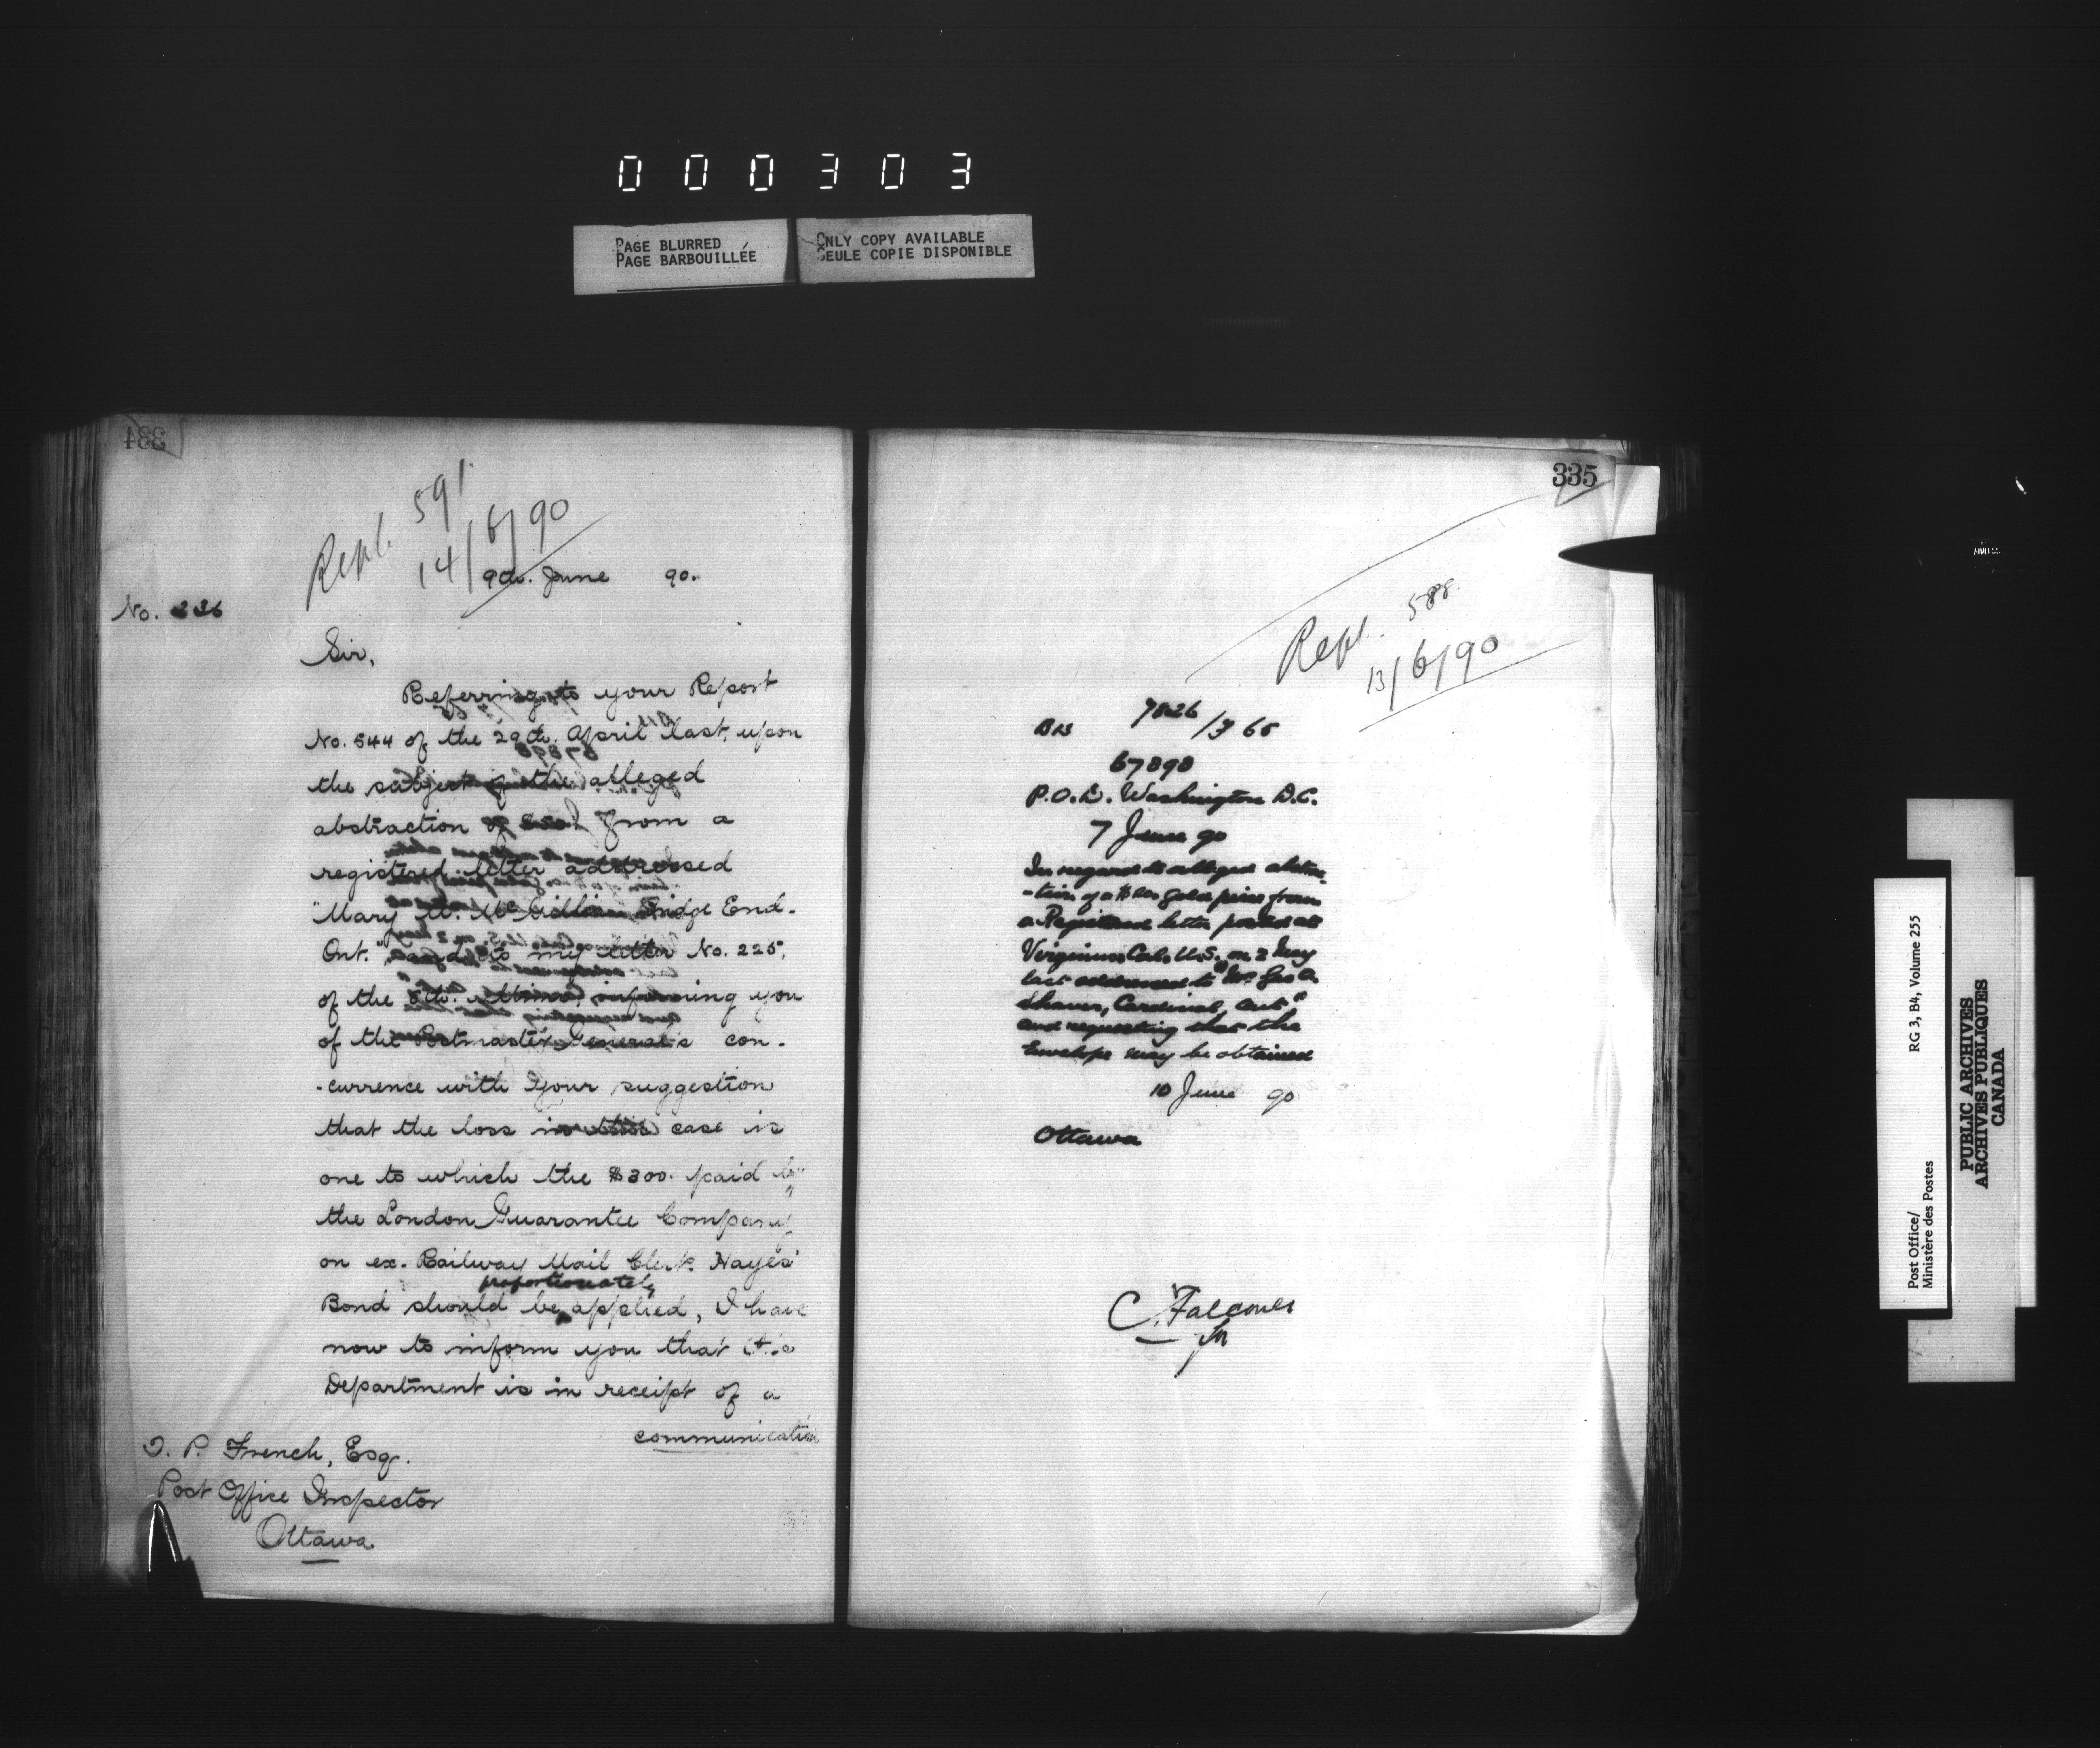 000303
PAGE BLURRED
PAGE BARBOUILLÉE
ONLY COPY AVAILABLE
SEULE COPIE DISPONIBLE
334
Repl. 591
14/6/90
9th. June 90.
No. 226
Sir,
Referring to your Report
No. 544 of the 29th. April last, upon
the subject of the alleged
abstraction of from a
registered letter addressed
"Mary Mc Bridge End.
Ont.", and to my letter No. 225,
of the 8th. ultimo, informing you
of the Postmaster General's con-
-currence with your suggestion
that the loss in this case is
one to which the $300. paid by
the London Guarantee Company
on ex. Railway Mail Clerk Hayes'
proportionately
Bond should be applied, I have
now to inform you that the
Department is in receipt of a
communication
T. P. French, Esq.
Post Office Inspector
Ottawa.
335
Repl. 588.
13/6/90
7826
67898
P.O.D. Washington D.C.
7 June 90
In regard to alleged abstrac-
-tion of a gold piece from
a Registered letter posted at
U.S. on 2 May
last addressed to "Mr. Geo A.
Shaver, Cardinal, Ont"
and requesting that the
Envelope may be obtained
10 June 90
Ottawa
C. Falconer
Post Office/
Ministère des Postes
RG 3, B4, Volume 255
PUBLIC ARCHIVES
ARCHIVES PUBLIQUES
CANADA